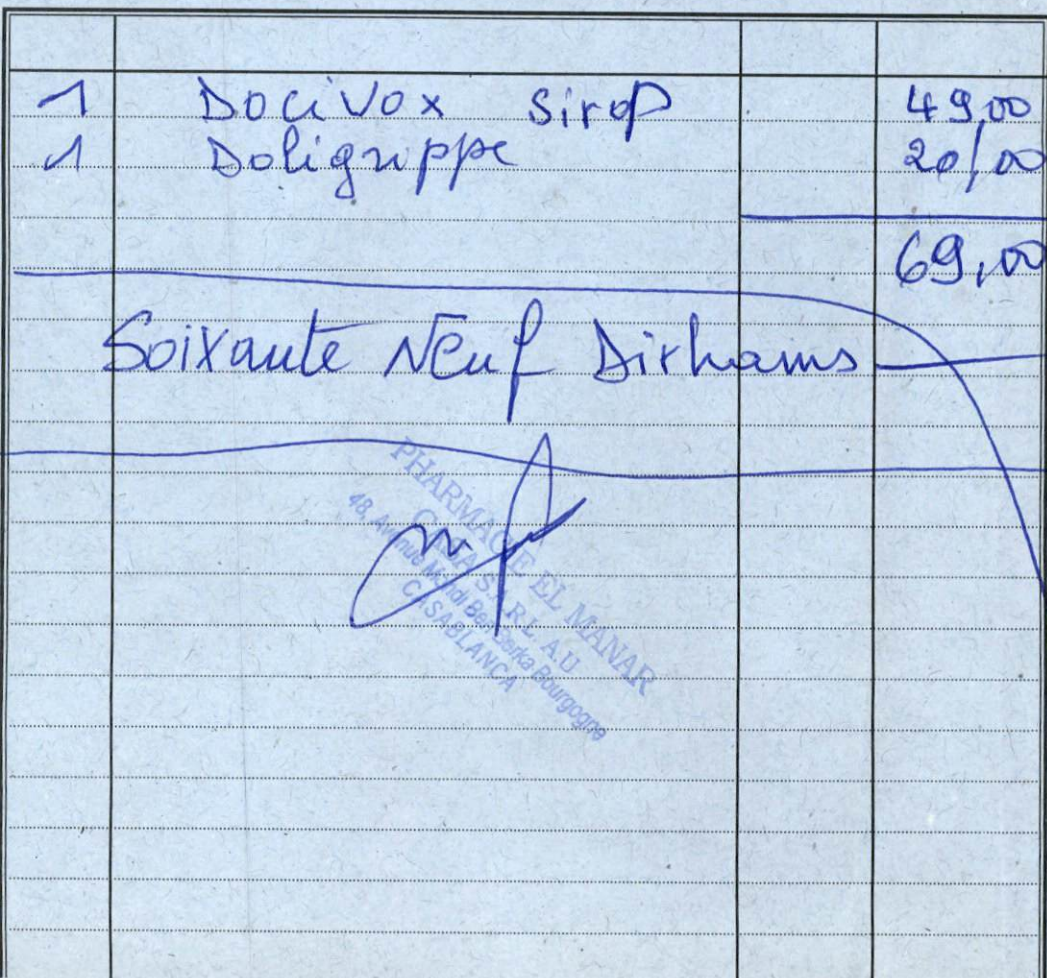 1 Docivox Sirop 49,00
1 Doligrippe 20,00
69,00
Soixante Neuf Dirhams
PHARMACIE EL MANAR
CASA S.A.R.L. AU
48, Avenue Mehdi Ben Barka Bourgogne
CASABLANCA